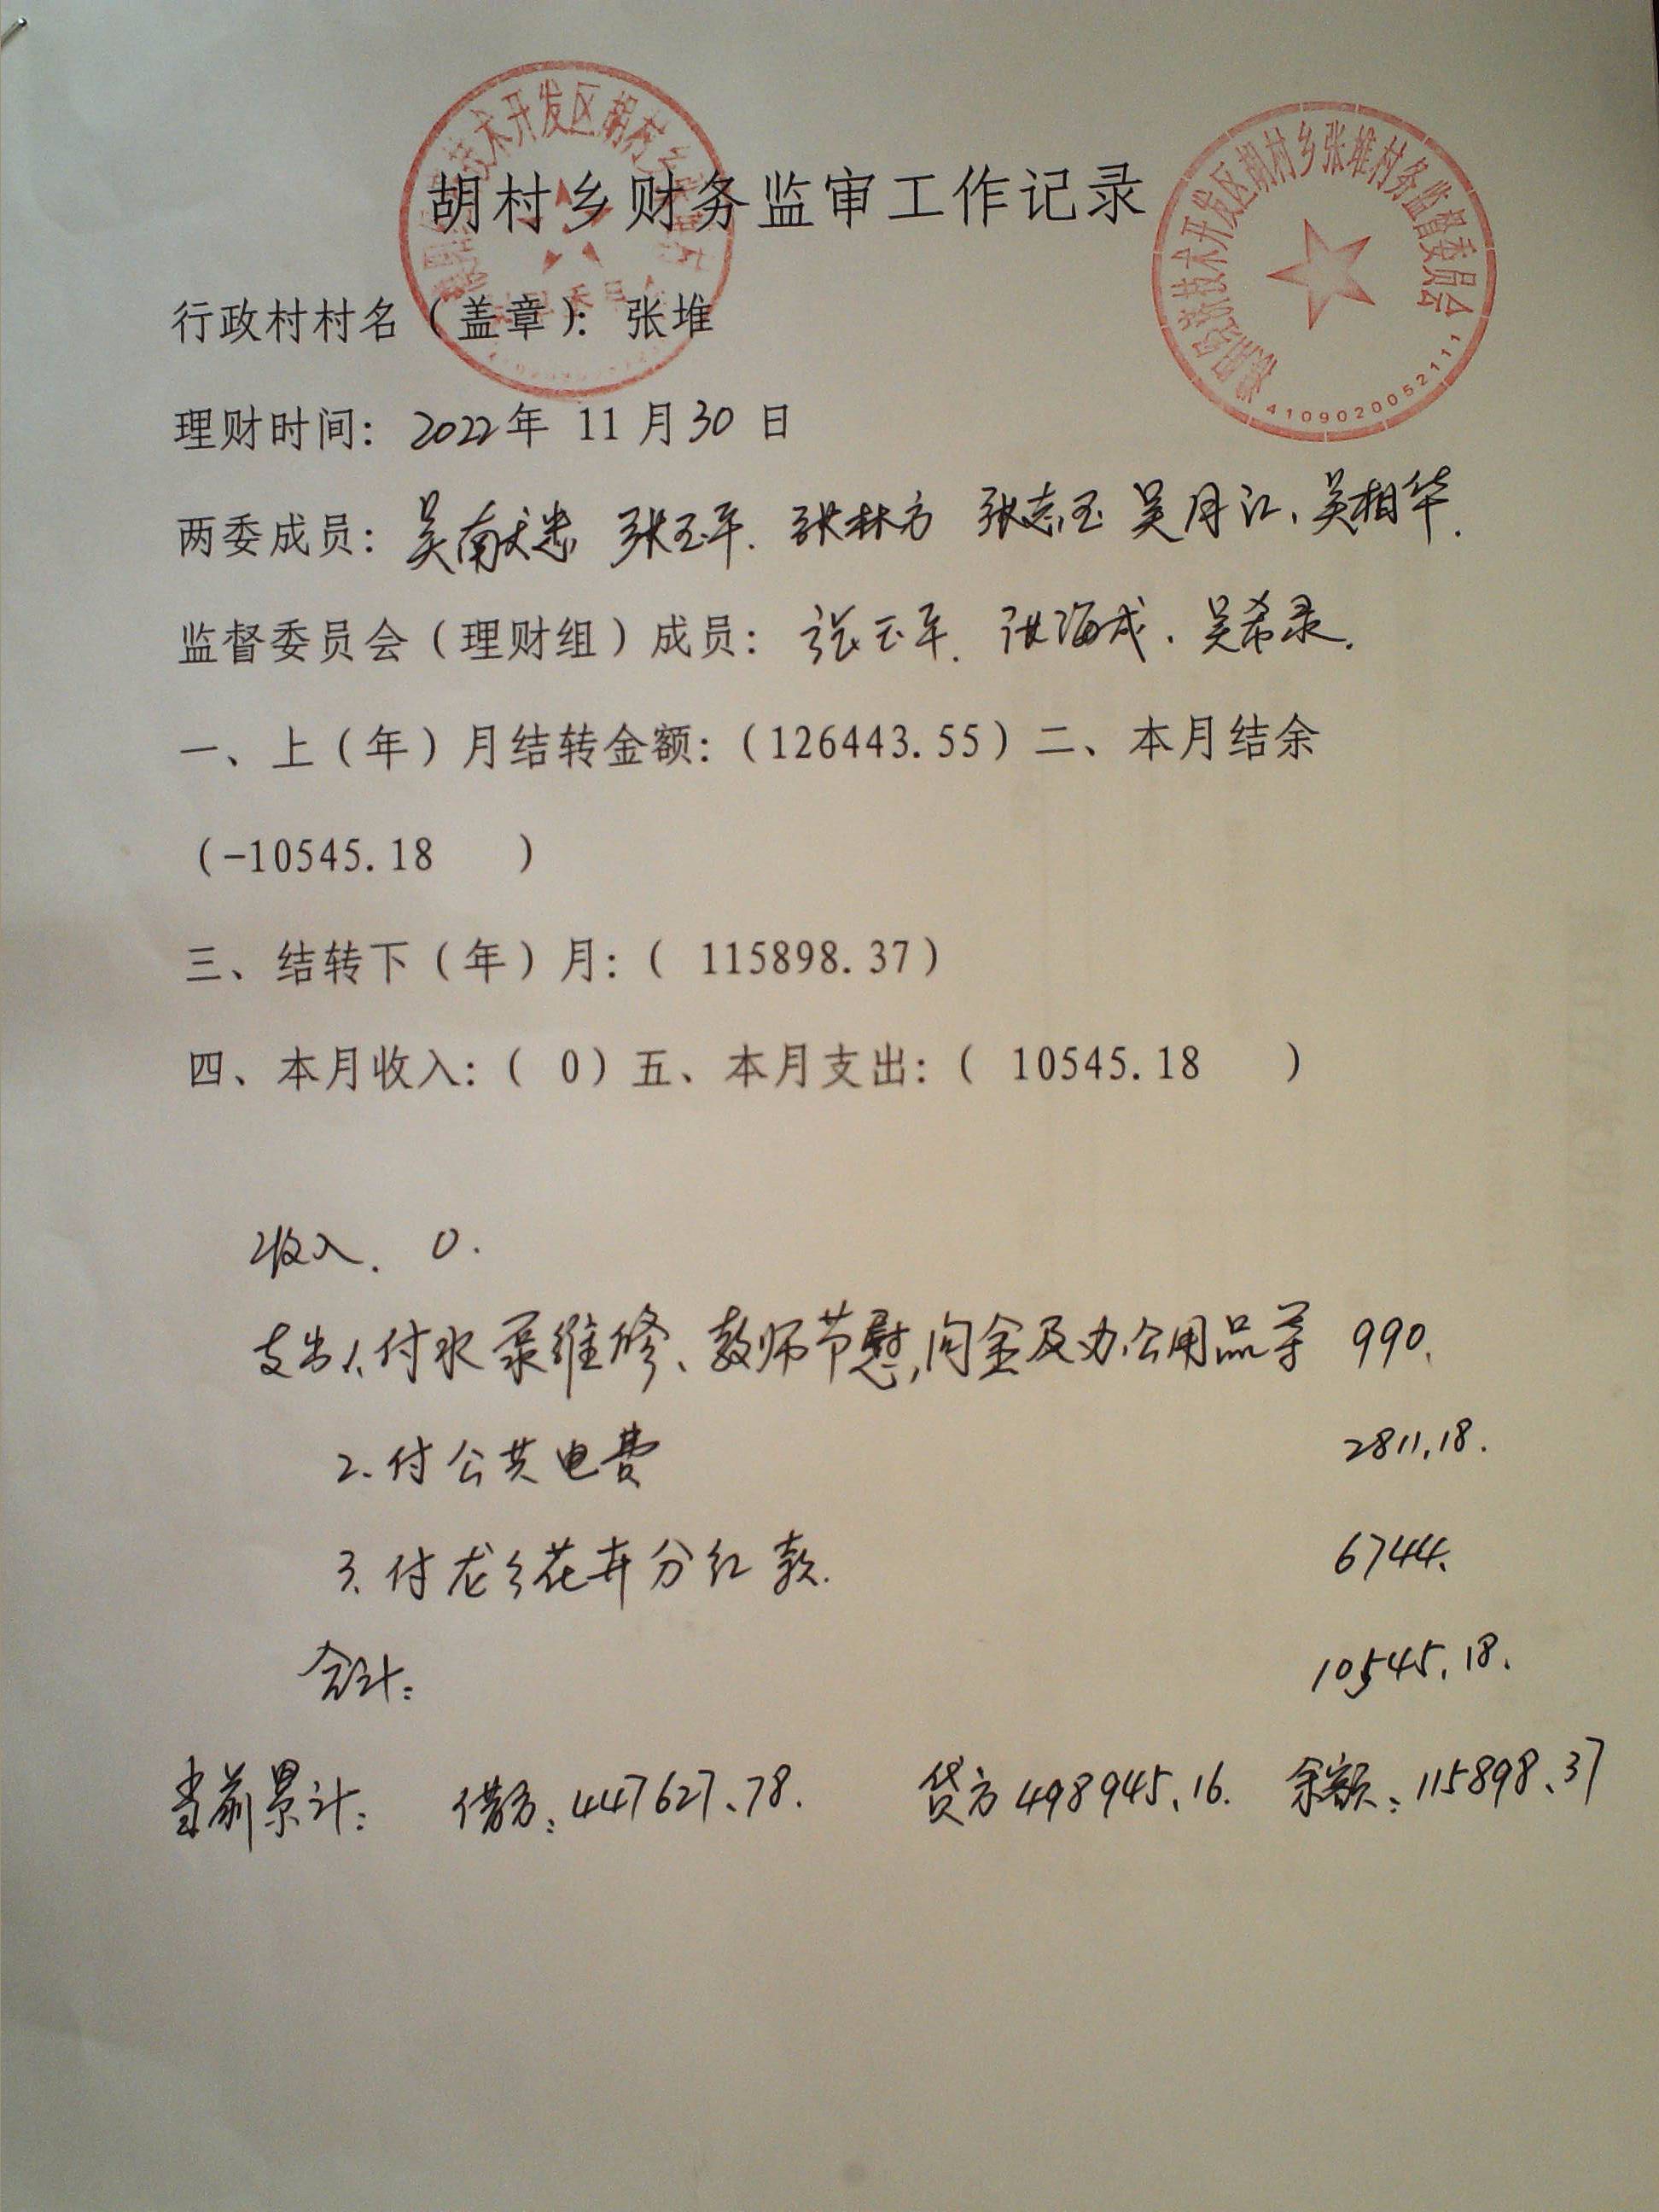 胡村乡财务监审工作记录
技术开发区胡村乡
开发区胡村乡张堆村务监督委员会
4109020052111
行政村村名（盖章）：张堆
理财时间：2022年 11月30日
两委成员：吴献忠 张玉平、张林方 张志玉 吴月江、吴相华.
监督委员会（理财组）成员：张玉平、张海成、吴希录.
一、上（年）月结转金额：（126443.55）二、本月结余
（-10545.18 ）
三、结转下（年）月：（ 115898.37）
四、本月收入：（ 0）五、本月支出：（ 10545.18 ）
收入. 0.
支出1、付水泵维修、教师节慰问金及办公用品等 990.
2、付公共电费 2811.18.
3、付龙乡花卉分红款. 6744.
合计： 10545.18.
当前累计： 借方：447627.78. 贷方498945.16. 余额：115898.37